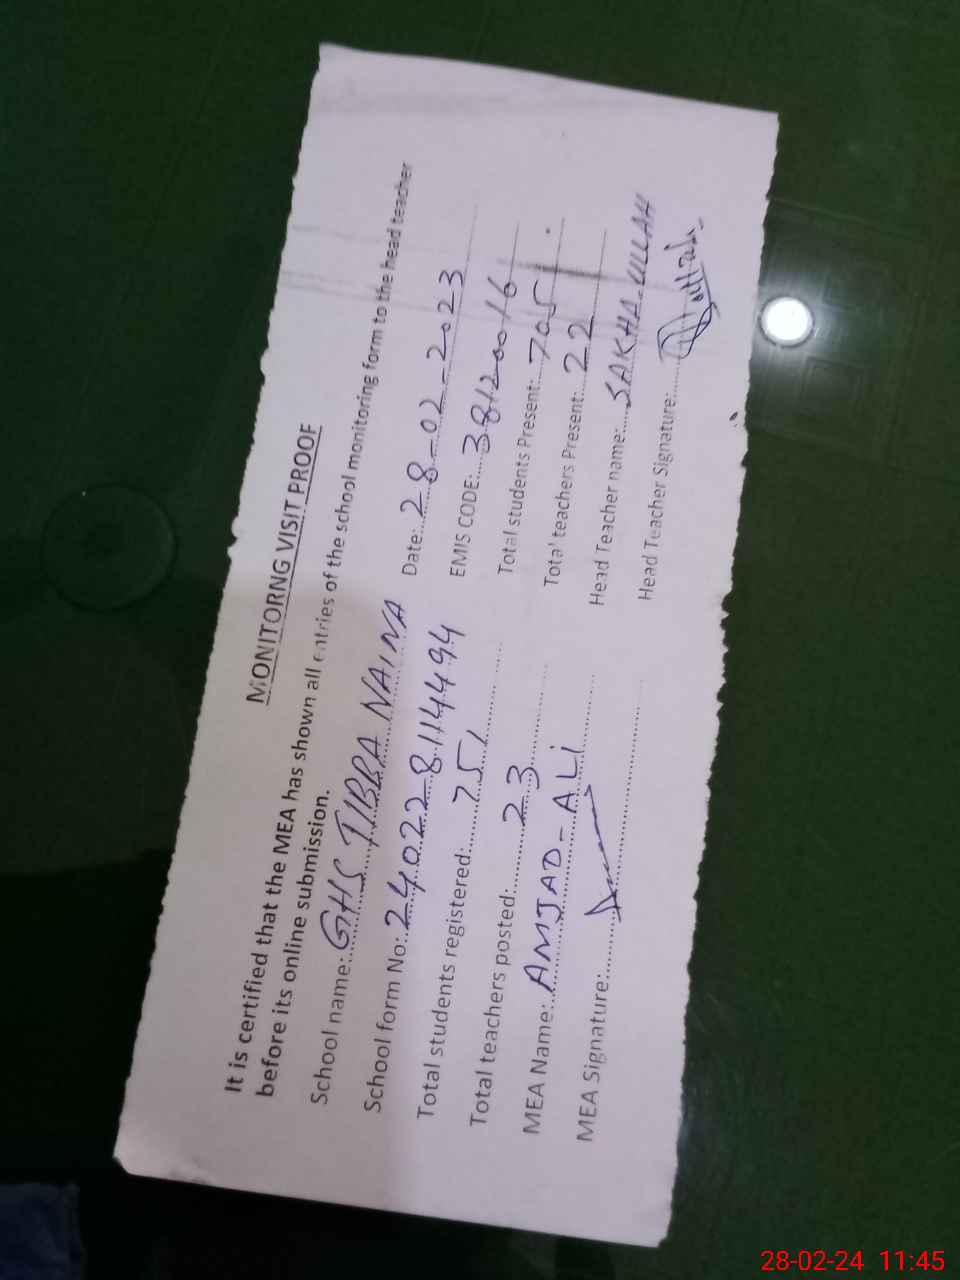 MONITORNG VISIT PROOF
It is certified that the MEA has shown all entries of the school monitoring form to the head teacher
before its online submission.
School name: GHS TIBBA NAINA Date: 28-02-2023
School form No: 240228114494 EMIS CODE: 38120016
Total students registered: 751 Total students Present: 705
Total teachers posted: 23 Total teachers Present: 22
MEA Name: AMJAD-ALi Head Teacher name: SAKHA-ULLAH
MEA Signature: Head Teacher Signature:
28-02-24 11:45